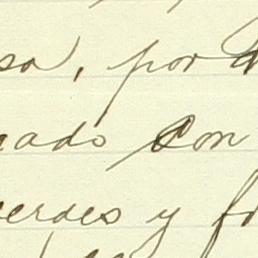 sa, por
cado con
verdes y